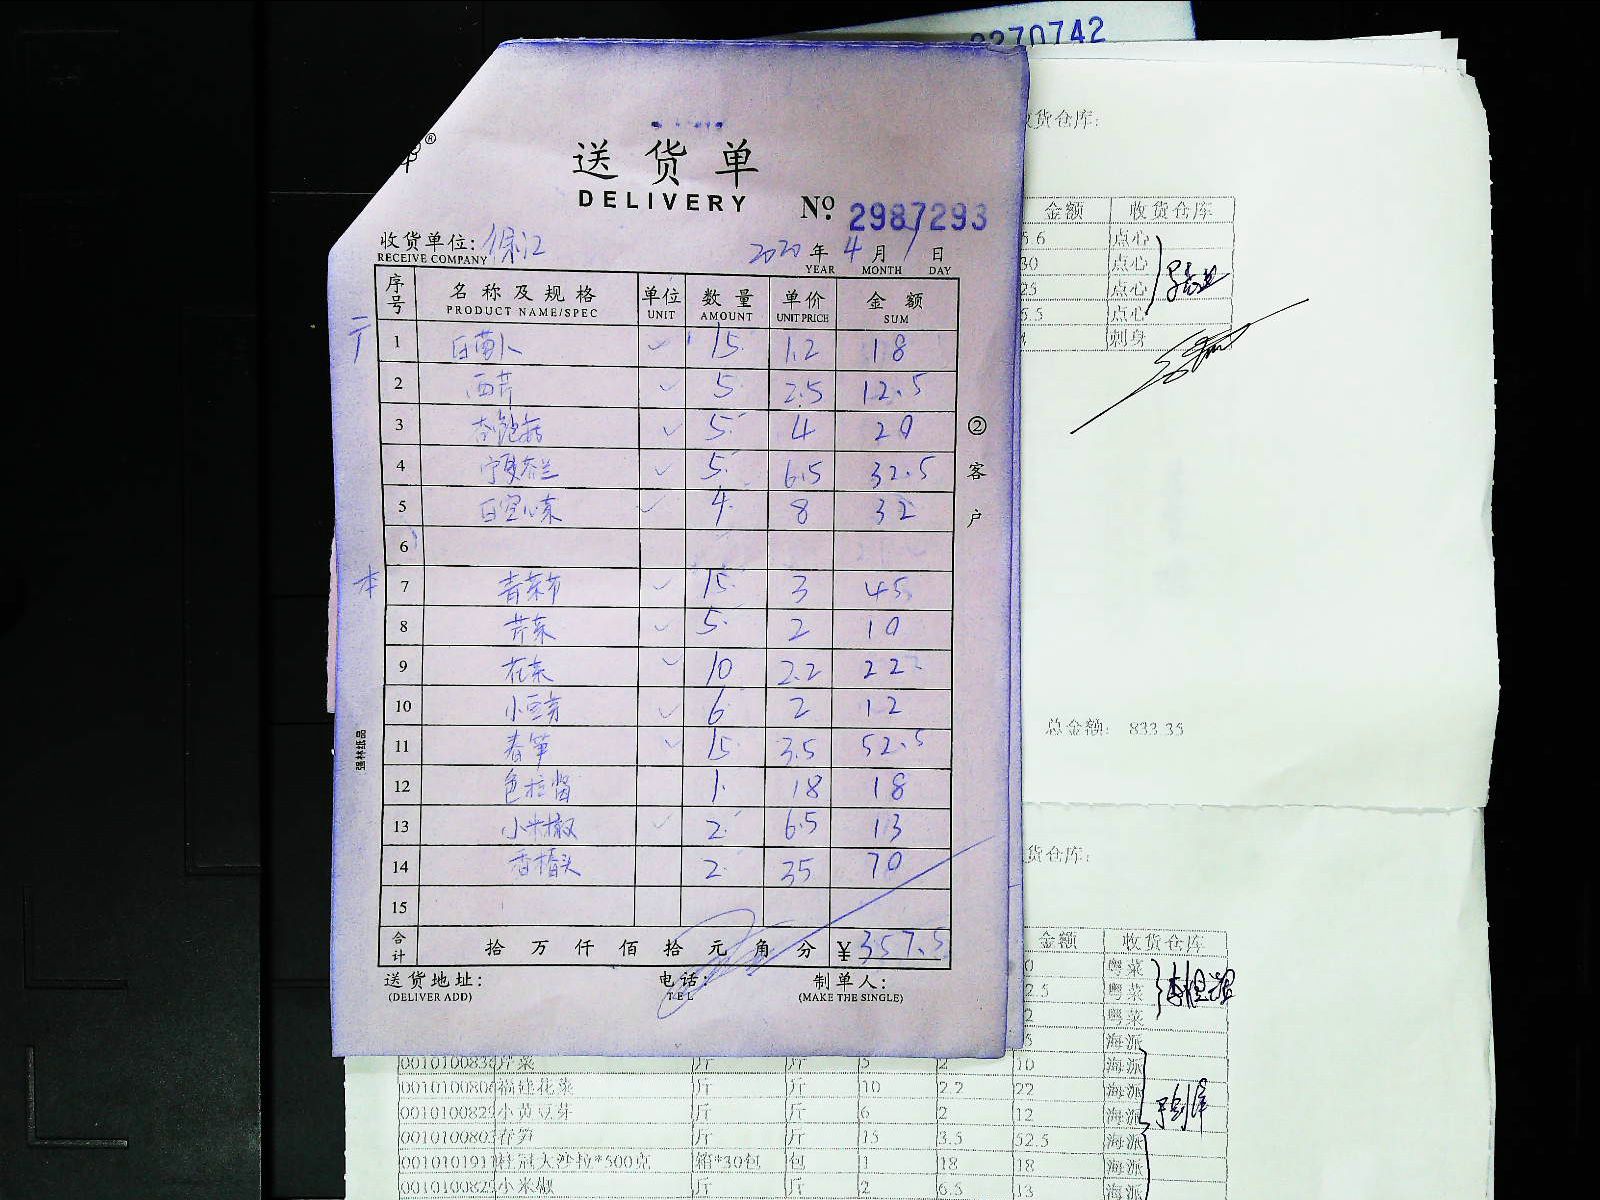 2370742
送货单
DELIVERY
№ 2987293
收货单位: 保江 2020年4月1日
RECEIVE COMPANY YEAR MONTH DAY
序号 名称及规格 单位 数量 单价 金额
PRODUCT NAME/SPEC UNIT AMOUNT UNIT PRICE SUM
1 白萝卜 ✓ 15 1.2 18
2 西芹 ✓ 5 2.5 12.5
3 杏鲍菇 ✓ 5 4 20
4 宁夏芥兰 ✓ 5 6.5 32.5
5 白空心菜 ✓ 4 8 32
6
本 7 青菜 ✓ 15 3 45
8 芹菜 ✓ 5 2 10
9 花菜 ✓ 10 2.2 22
10 小豆芽 ✓ 6 2 12
11 春笋 ✓ 15 3.5 52.5
12 色拉酱 1 18 18
13 小米椒 ✓ 2 6.5 13
14 香椿头 2 35 70
15
合计 拾万仟佰拾元角分 ¥357.5
送货地址: 电话: 制单人:
(DELIVER ADD) TEL (MAKE THE SINGLE)
②客户
强林纸品
收货仓库:
金额 收货仓库
5.6 点心
30 点心
25 点心
5.5 点心
刺身
总金额: 833.35
货仓库:
金额 收货仓库
0 粤菜
2.5 粤菜
2 粤菜
5 海派
芹菜 斤 斤 5 2 10 海派
福建花菜 斤 斤 10 2.2 22 海派
小黄豆芽 斤 斤 6 2 12 海派
春笋 斤 斤 15 3.5 52.5 海派
桂冠大沙拉*500克 箱*30包 包 1 18 18 海派
小米椒 斤 斤 2 6.5 13 海派